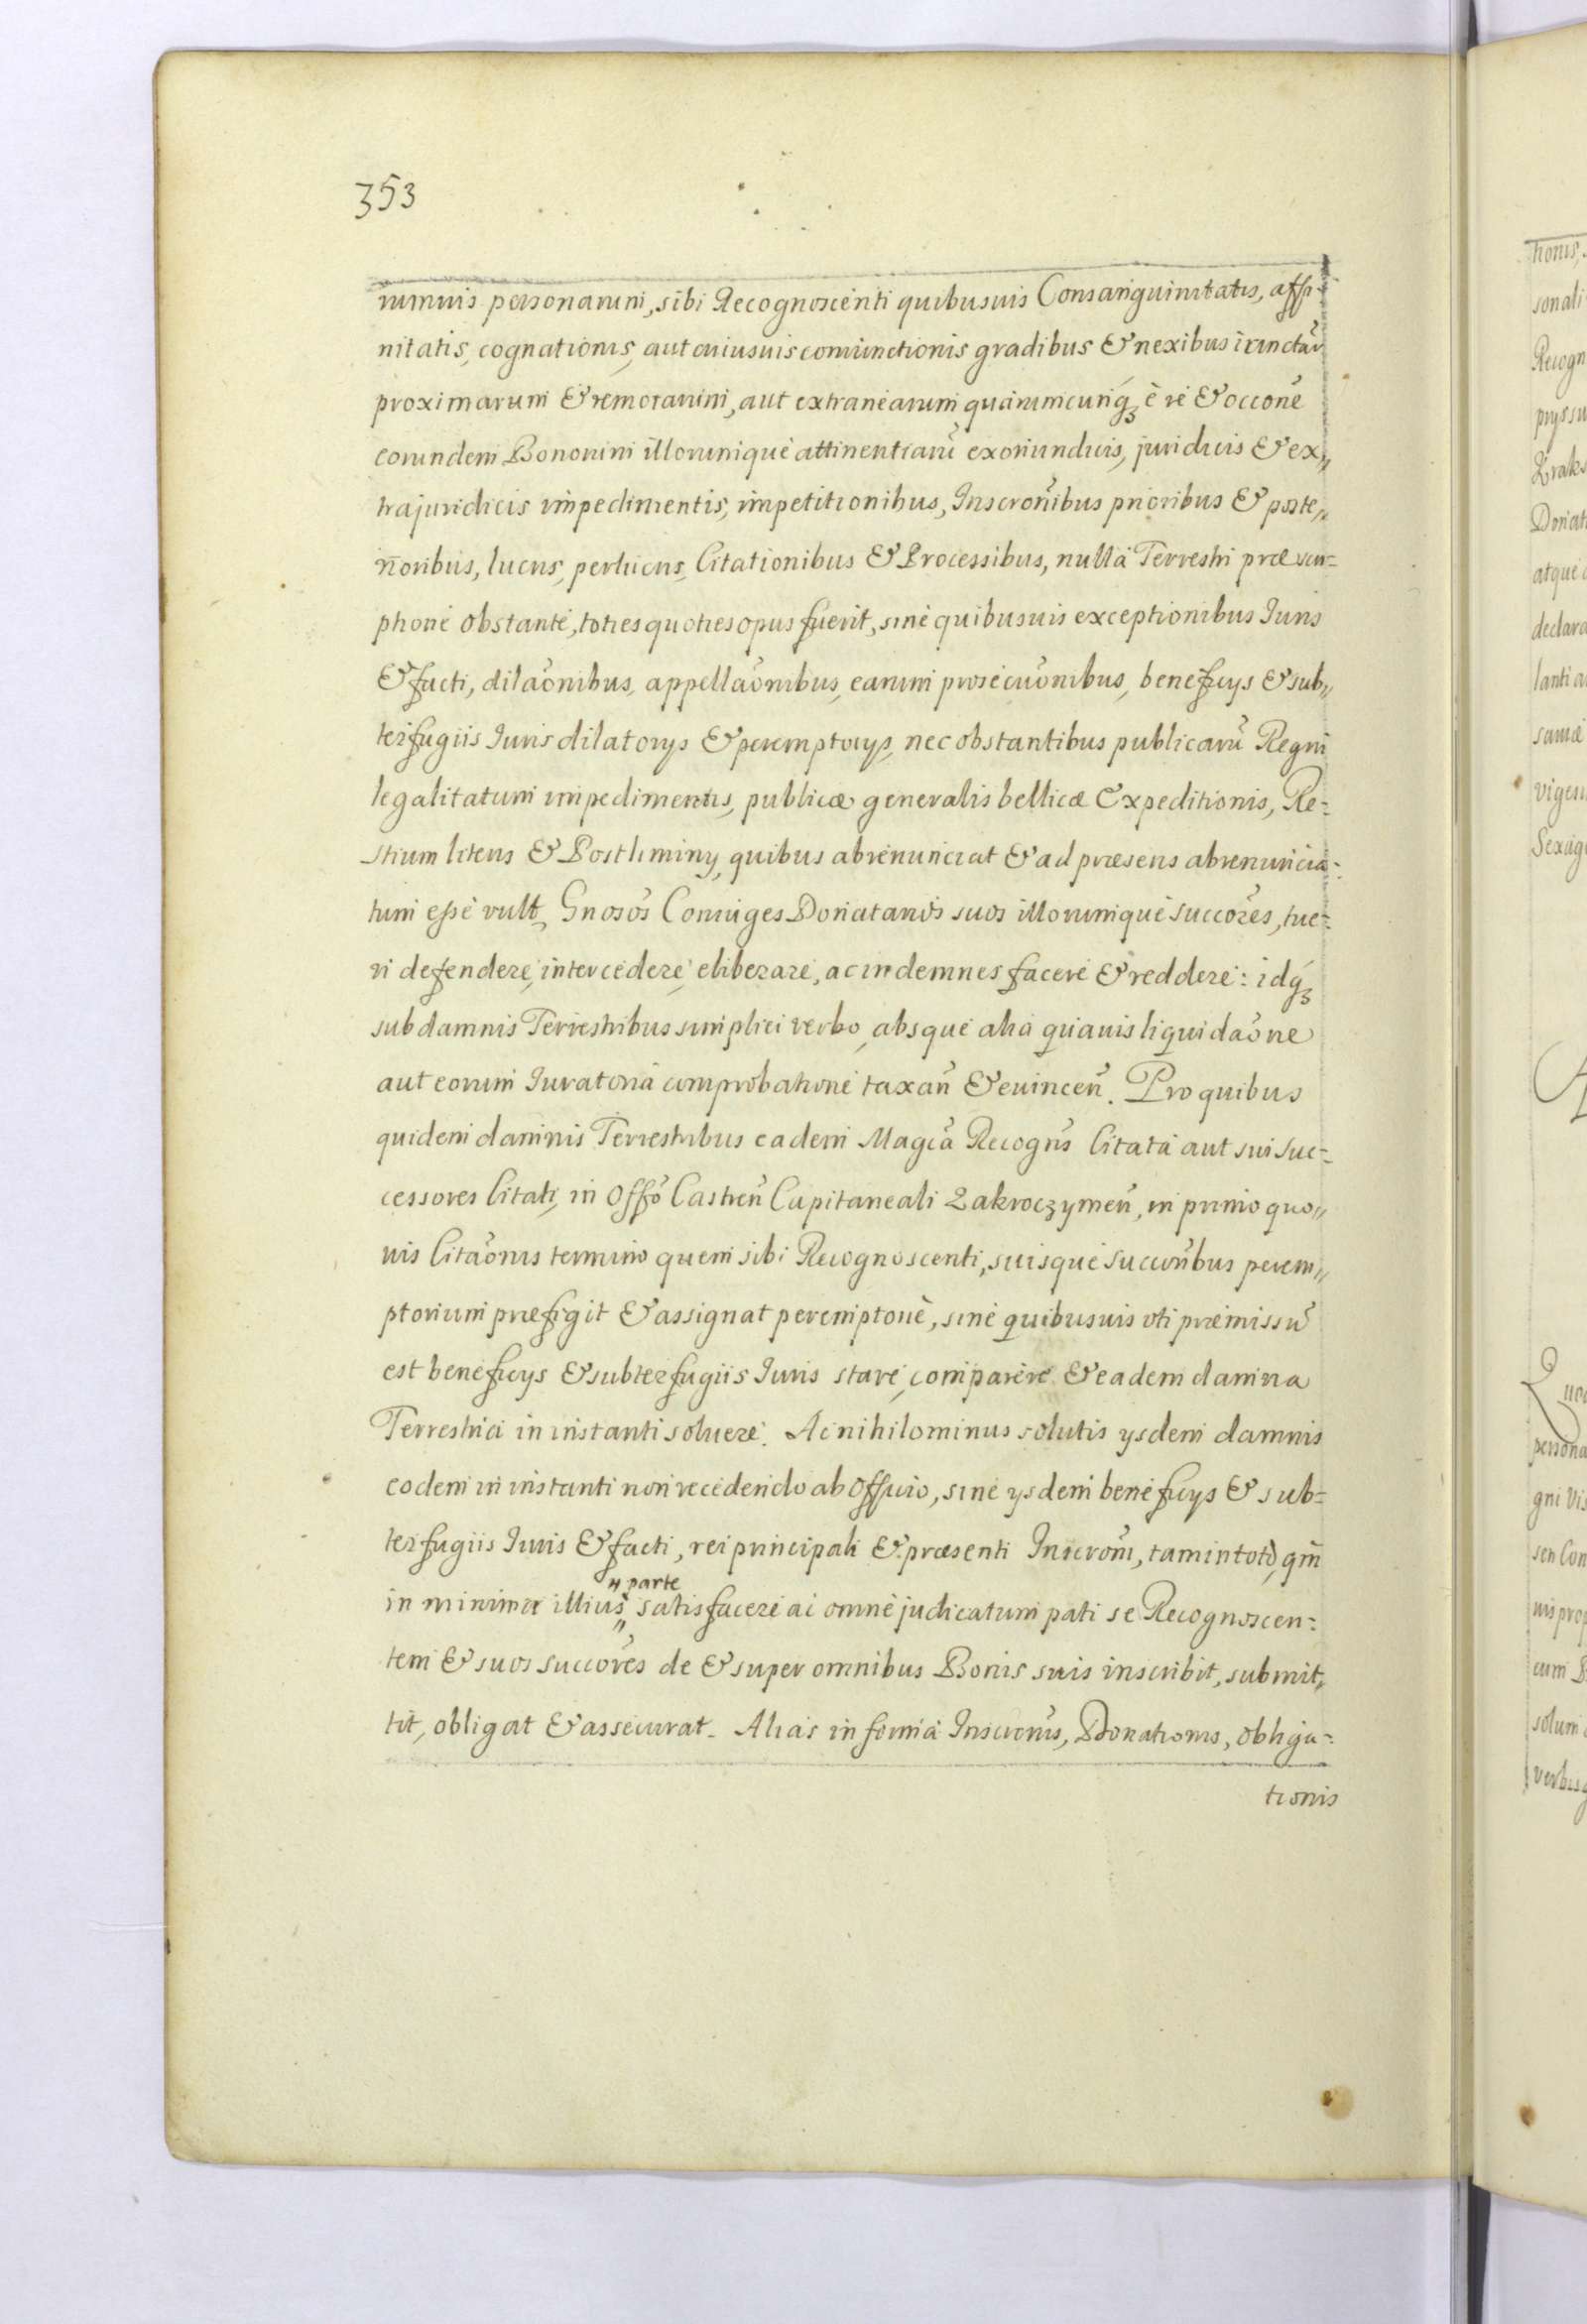 353
rumuis personarum, sibi Recognoscenti quibusuis Consanguinitatis, affi-
nitatis, cognationis, aut cuiusuis coniunctionis gradibus & nexibus iunctarũ
proximarum & remotarum, aut extranearum quarumcunq́ȝ è re & occõne
eorundem Bonorum illorumque attinentiarũ exoriundicis, juridicis & ex„
trajuridicis impedimentis, impetitionibus, Inscrõnibus prioribus & poste„
rioribus, lucris, perlucris, Citationibus & Processibus, nullâ Terrestri præscri-
ptione obstante, toties quoties opus fuerit, sine quibusuis exceptionibus Iuris
& facti, dilãonibus, appellãonibus, earum prosecuõnibus, beneficys & sub„
terfugiis Iuris dilatorys & peremptorys, nec obstantibus publicarũ Regni
legalitatum impedimentis, publicæ generalis bellicæ Expeditionis, Re-
stium literis & Postliminy, quibus abrenunciat & ad præsens abrenuncia-
tum esse vult, Gnosõs Coniuges Donatarios suos illorumque succõres, tue-
ri defendere, intercedere, eliberare, ac indemnes facere & reddere: idq́ȝ
sub damnis Terrestribus simplici verbo, absque alia quauis liquidãone
aut eorum Iuratoria comprobatione taxañ & euinceñ. Pro quibus
quidem damnis Terrestribus eadem Magcã Recogñs Citata aut sui suc-
cessores Citati, in Offõ Castreñ Capitaneali Zakroczymeñ, in primo quo„
uis Citãonis termino quem sibi Recognoscenti, suisque succoribus perem„
ptorium præfigit & assignat peremptoriè, sine quibusuis vti præmissũ
est beneficys & subterfugiis Iuris stare, comparere & eadem damna
Terrestria in instanti soluere. Ac nihilominus solutis ysdem damnis
eodem in instanti non recedendo ab Officio, sine ysdem beneficys & sub-
terfugiis Iuris & facti, rei principali & præsenti Inscrõni, tam in toto, qm̃
in minima illius „parte satisfacere ac omne judicatum pati se Recognoscen-
tem & suos succõres de & super omnibus Bonis suis inscribit, submit„
tit, obligat & assecurat. Alias in forma Inscrõnis, Donationis, obliga-
tionis